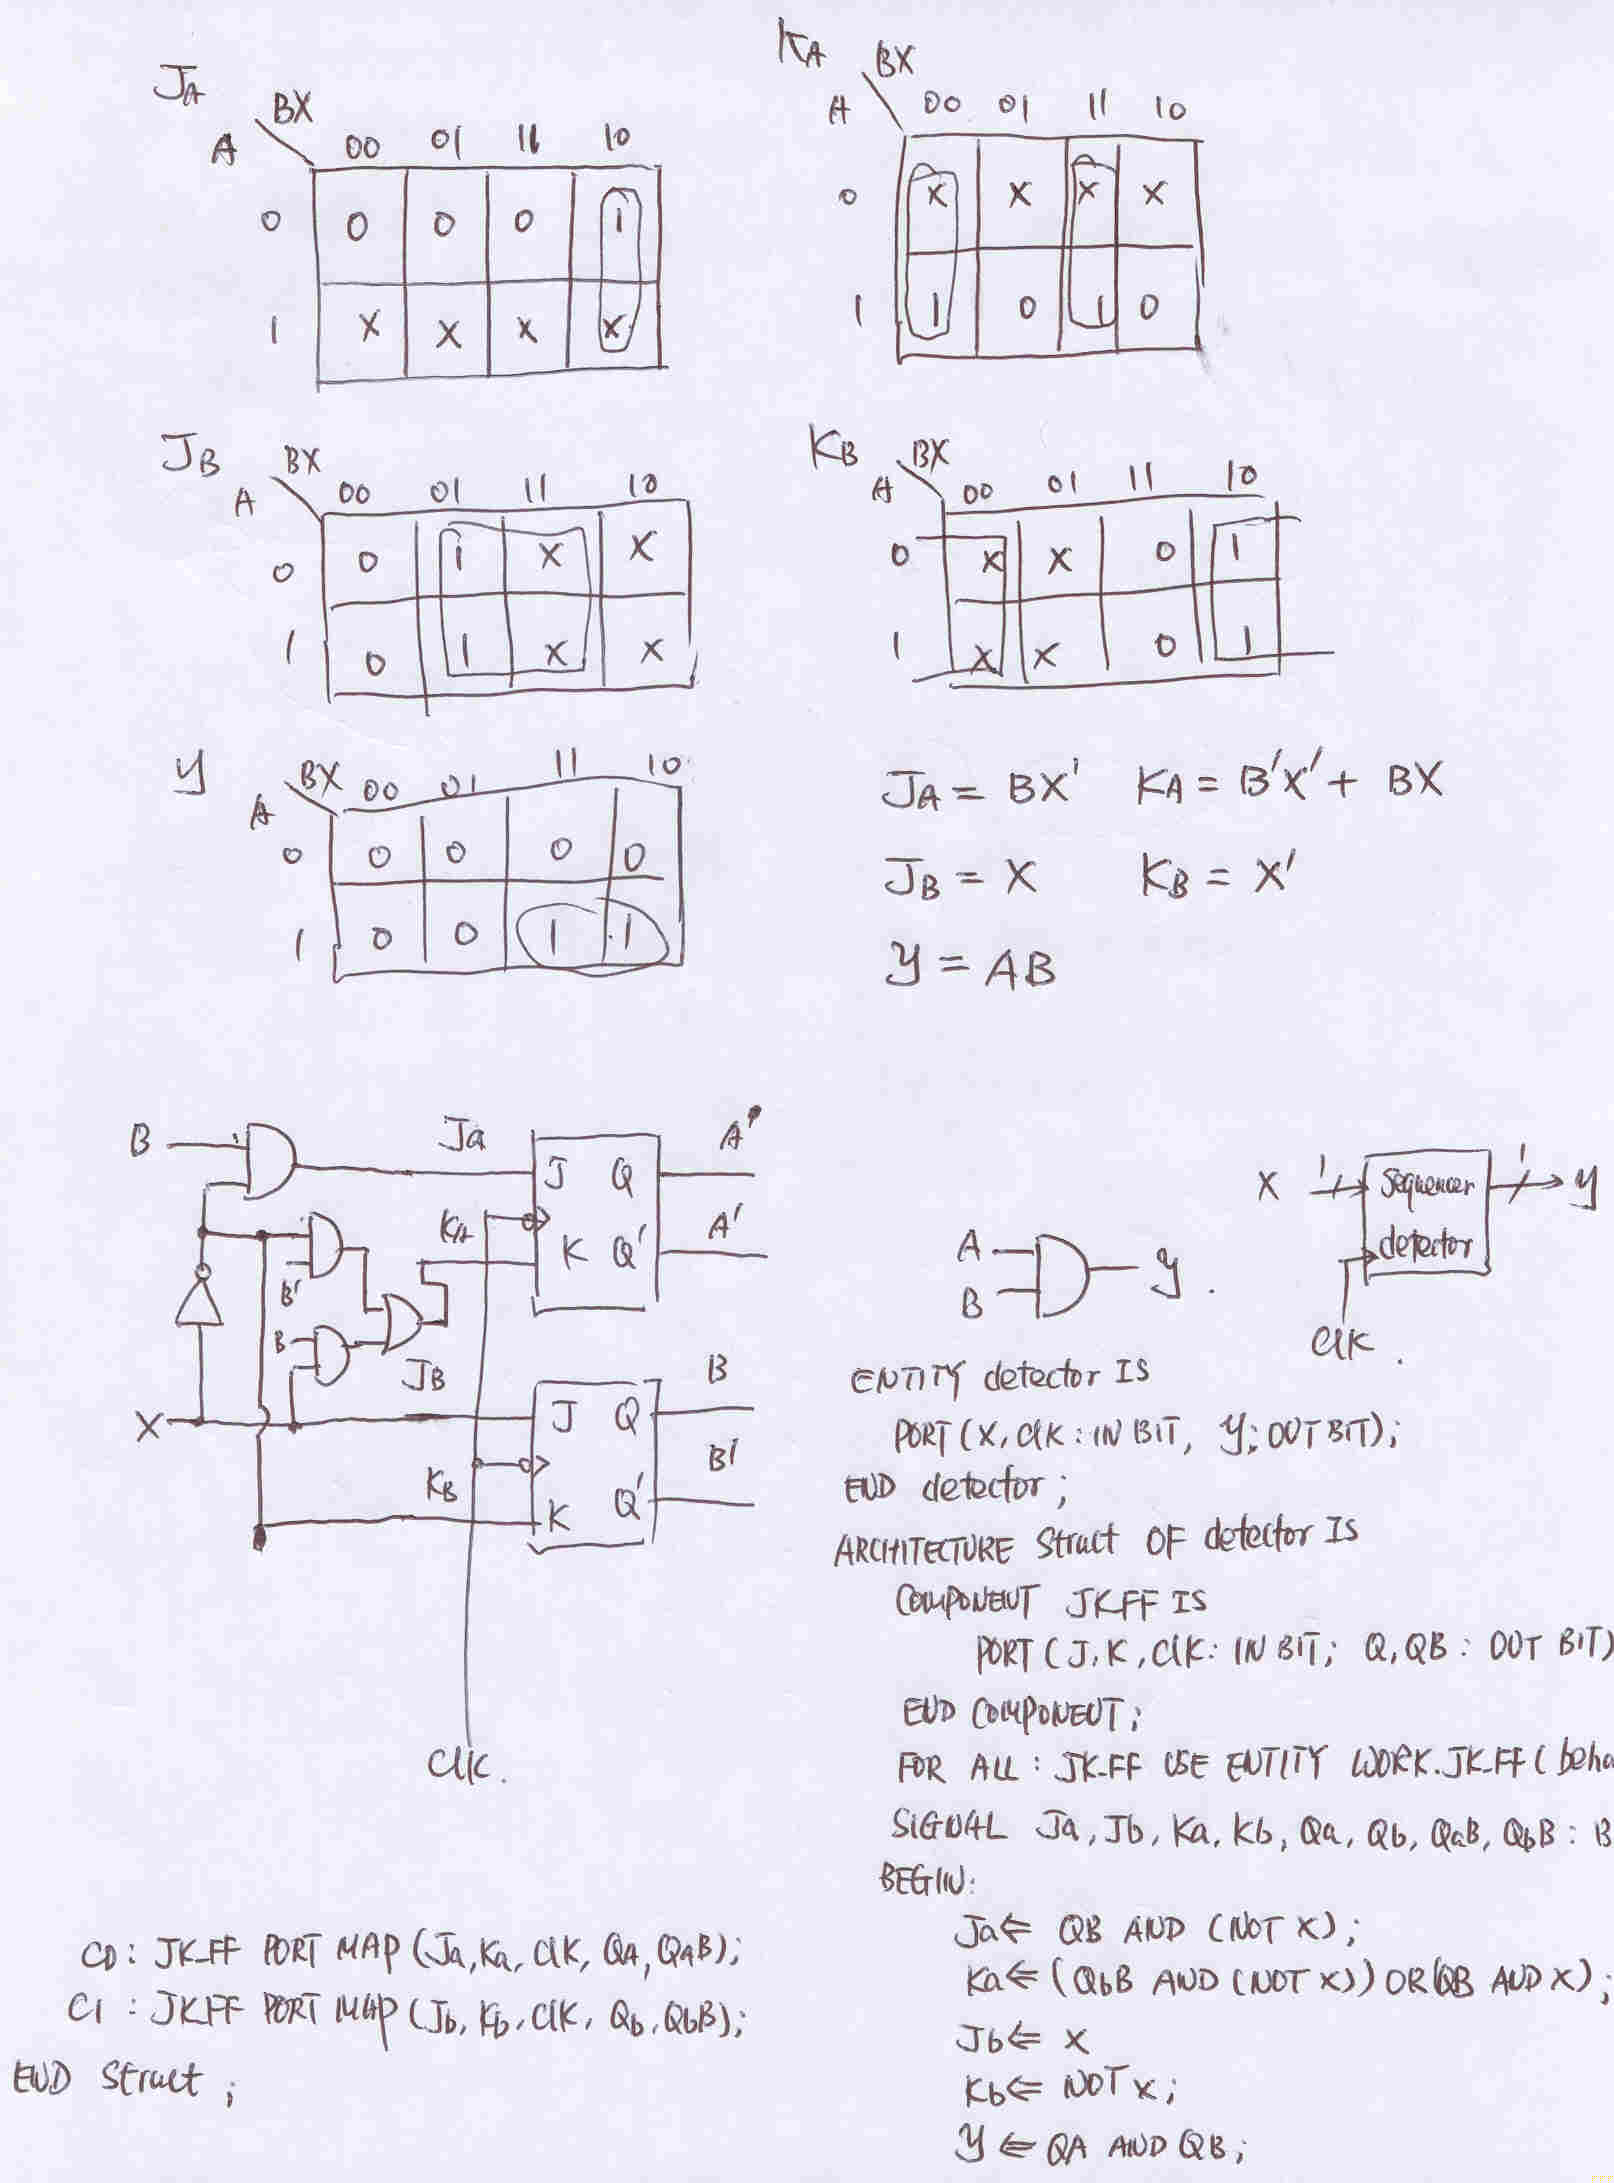 JA
BX
A
00 01 11 10
0 0 0 0 1
1 X X X X
KA
BX
A
00 01 11 10
0 X X X X
1 1 0 1 0
JB
BX
A
00 01 11 10
0 0 1 X X
1 0 1 X X
KB
BX
A
00 01 11 10
0 X X 0 1
1 X X 0 1
Y
BX
A
00 01 11 10
0 0 0 0 0
1 0 0 1 1
JA = BX' KA = B'X' + BX
JB = X KB = X'
Y = AB
B
Ja
J Q
A'
KA
K Q'
A'
B'
B
JB
X
J Q
B
KB
K Q'
B'
Clk.
A
B
Y.
X 1 sequencer 1 Y
detector
Clk.
ENTITY detector IS
PORT (X, Clk : IN BIT, Y; OUT BIT);
END detector;
ARCHITECTURE Struct OF detector IS
COMPONENT JK-FF IS
PORT (J, K, Clk: IN BIT; Q, QB : OUT BIT)
END COMPONENT;
FOR ALL : JK-FF USE ENTITY WORK.JK-FF (beha
SIGNAL Ja, Jb, Ka, Kb, Qa, Qb, QaB, QbB : B
BEGIN:
Ja <= QB AND (NOT X);
Ka <= (QbB AND (NOT X)) OR (QB AND X);
Jb <= X
Kb <= NOT X;
Y <= QA AND QB;
C0 : JK-FF PORT MAP (Ja, Ka, Clk, QA, QaB);
C1 : JK-FF PORT MAP (Jb, Kb, Clk, Qb, QbB);
END Struct;